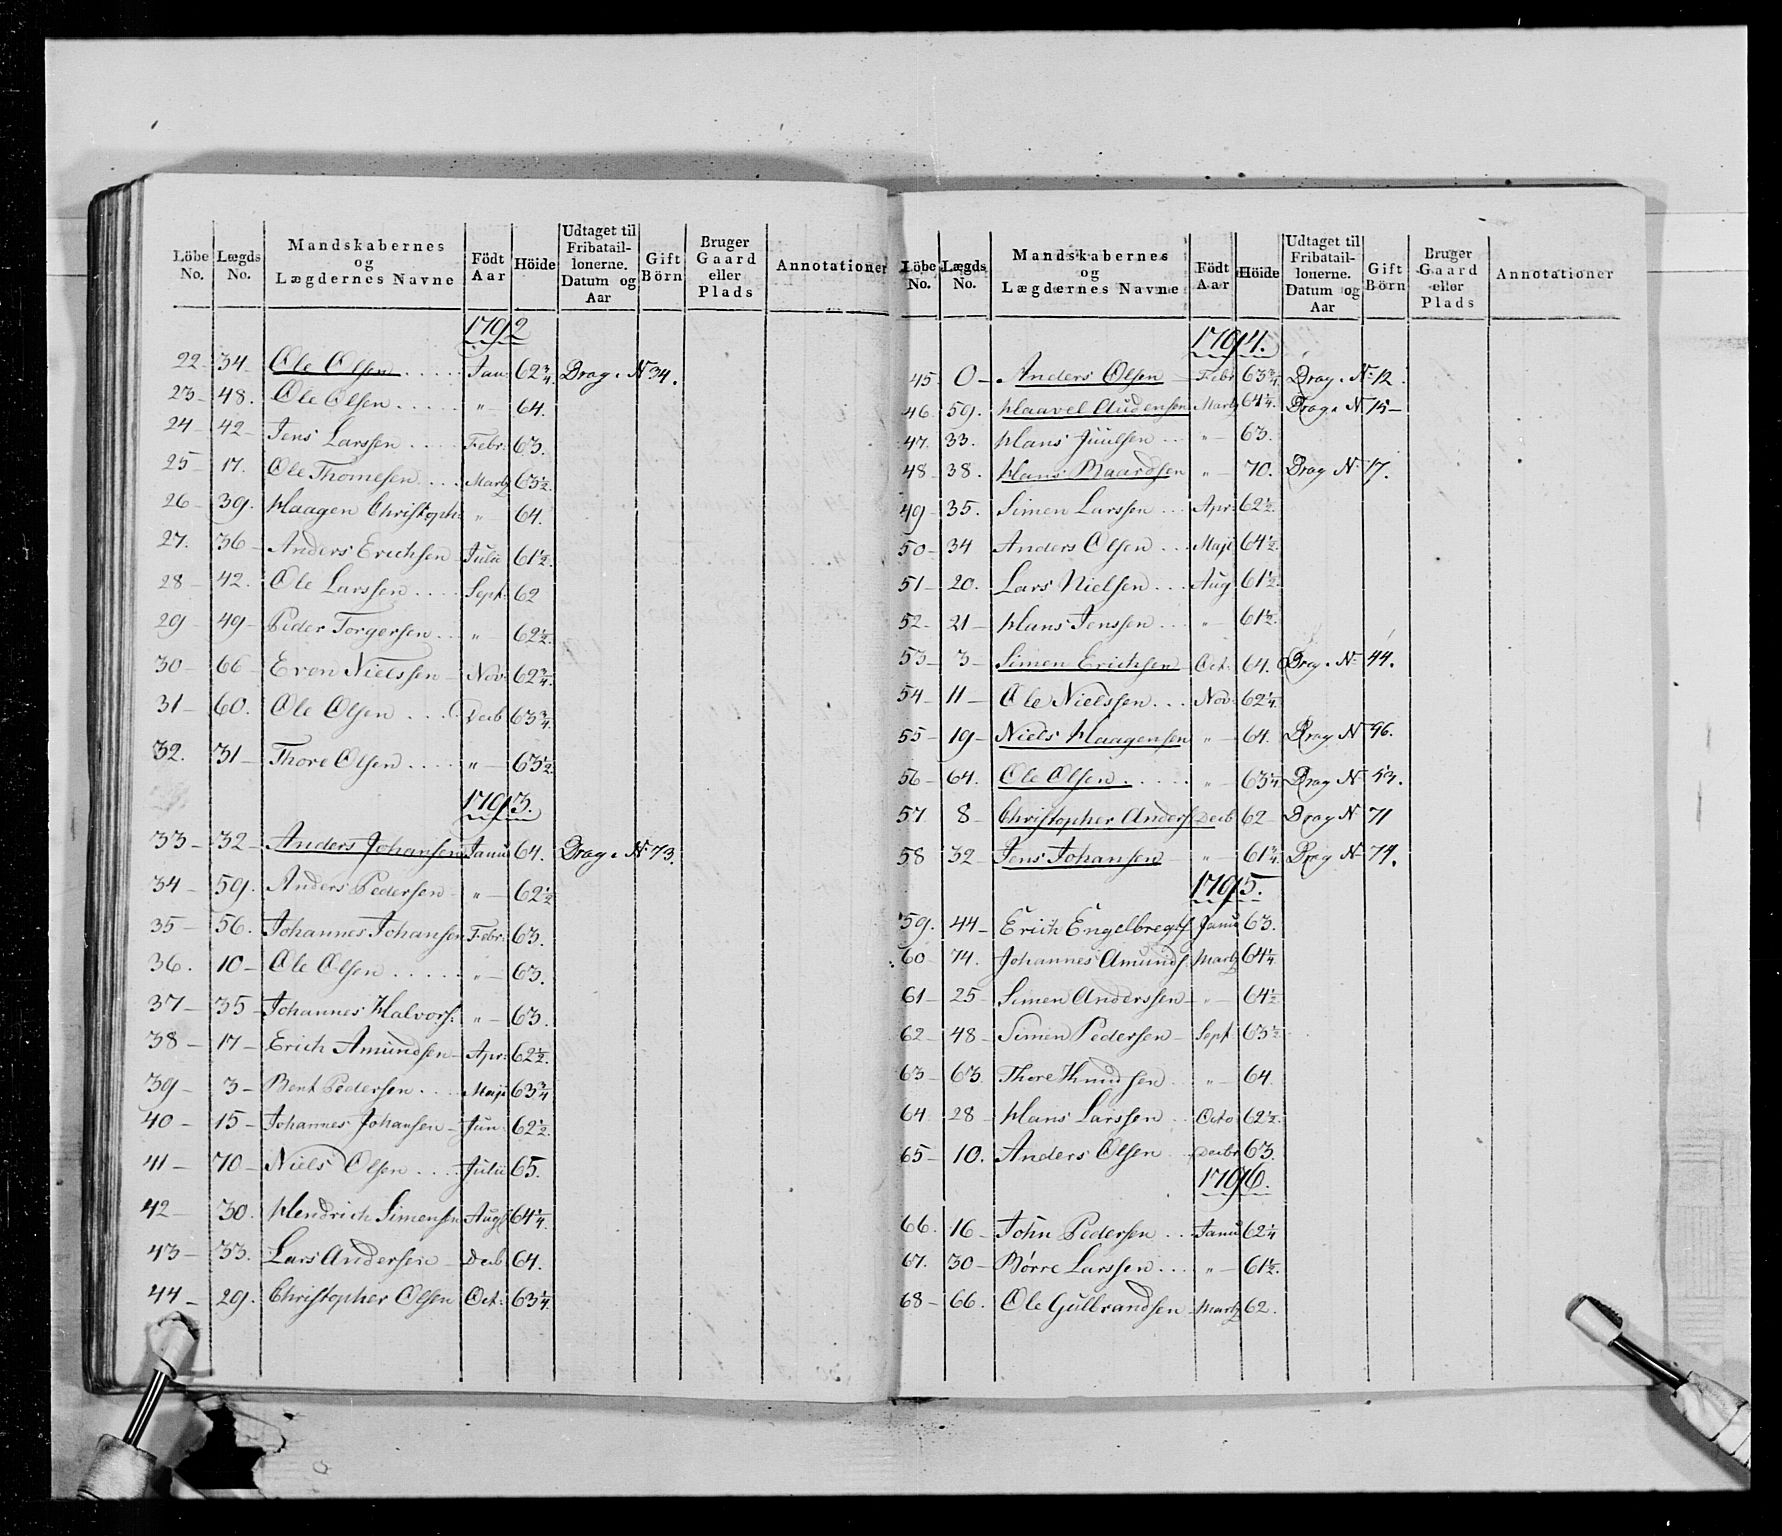 Löbe No. Lægds No. Mandskabernes og Lægdernes Navne Födt Aar Höide Udtaget til Fribataillonerne. Datum og Aar Gift Börn Bruger Gaard eller Plads Annotationer
1792
22- 34- Ole Olsen ..... Jan: 62 3/4 Drag. N 34.
23- 48. Ole Olsen ..... "- 64.
24- 42- Jens Larssen .... Febr: 63.
25- 17. Ole Thomesen .... Martz 63 1/2.
26- 39. Haagen Christoph: "- 64.
27. 36- Anders Erichsen Julii 61 1/2.
28- 42. Ole Larssen .... Sept: 62
29- 49- Peder Torgersen .. "- 62 1/2.
30- 66- Even Nielssen - Nov: 62 3/4.
31- 60. Ole Olsen .... Decb 63 3/4.
32. 31- Thore Olsen .... "- 63 1/2
1793.
33- 32- Anders Johansen Janu 64. Drag. N 73.
34- 59. Anders Pedersen - "- 62 1/2
35- 56. Johannes Johansen Febr: 63.
36. 10- Ole Olsen ..... "- 63.
37- 35- Johannes Halvors: "- 63.
38- 17- Erich Amundsen - Apr: 62 1/2.
39- 3- Bent Pedersen .... Maji 63 3/4
40- 15- Johannes Johansen - Jun: 62 1/2.
41- 70- Niels Olsen .... Julii 65.
42- 30. Hendrich Simensen Aug 64 1/4.
43- 33. Lars Andersen - Decb 64.
44- 29. Christopher Olsen Oct: 63 1/4.
Löbe No. Lægds No. Mandskabernes og Lægdernes Navne Födt Aar Höide Udtaget til Fribataillonerne. Datum og Aar Gift Börn Bruger Gaard eller Plads Annotationer
1794.
45. 0- Anders Olsen - Febr 63 3/4 Drag. N 12.
46. 59. Haavel Audensen Martz 64 1/4. Drag. N 15-
47. 33. Hans Juulsen ... "- 63.
48- 38. Hans Baardsen "- 70. Drag N 17.
49- 35. Simen Larssen ... Apr: 62 1/2.
50- 34 Anders Olsen ... Maji 64 1/2.
51- 20. Lars Nielsen ... Aug 61 1/2.
52. 21- Hans Jenssen ... "- 61 1/2.
53- 3- Simen Erichsen - Oct: 64. Drag. N 44.
54- 11- Ole Nielssen ... Nov: 62 1/4.
55- 19- Niels Haagensen "- 64. Drag. N 96.
56- 64. Ole Olsen ..... "- 63 1/4 Drag N 53.
57. 8- Christopher Anders Decb 62- Drag N 71
58 32- Jens Johansen - "- 61 3/4. Drag N 74.
1795.
59. 44- Erich Engelbregts Janu 63.
60- 74. Johannes Amunds. Martz 64 1/4.
61- 25- Simen Anderssen - "- 64 1/2
62- 48- Simen Pedersen - Sept 63 1/2.
63- 63. Thore Knudsen .. "- 64.
64. 28- Hans Larssen .. Octo 62 1/2.
65- 10. Anders Olsen .. Decbr 63.
1796.
66. 16- John Pedersen .. Janu 62 1/4
67. 30- Børre Larssen ... "- 61 1/2.
68- 66. Ole Gulbrandsen - Martz 62.